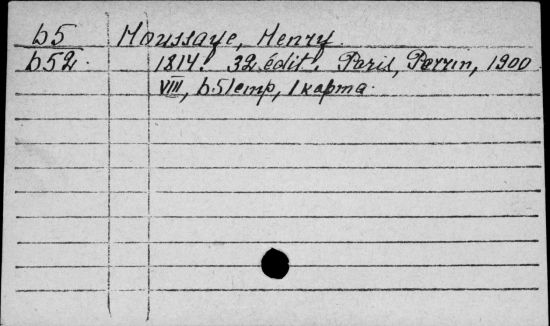 b5 Houssaye, Henry.
b52. 1814. 32 édit. Paris, Perrin, 1900
VIII, b51 стр, 1 карта.